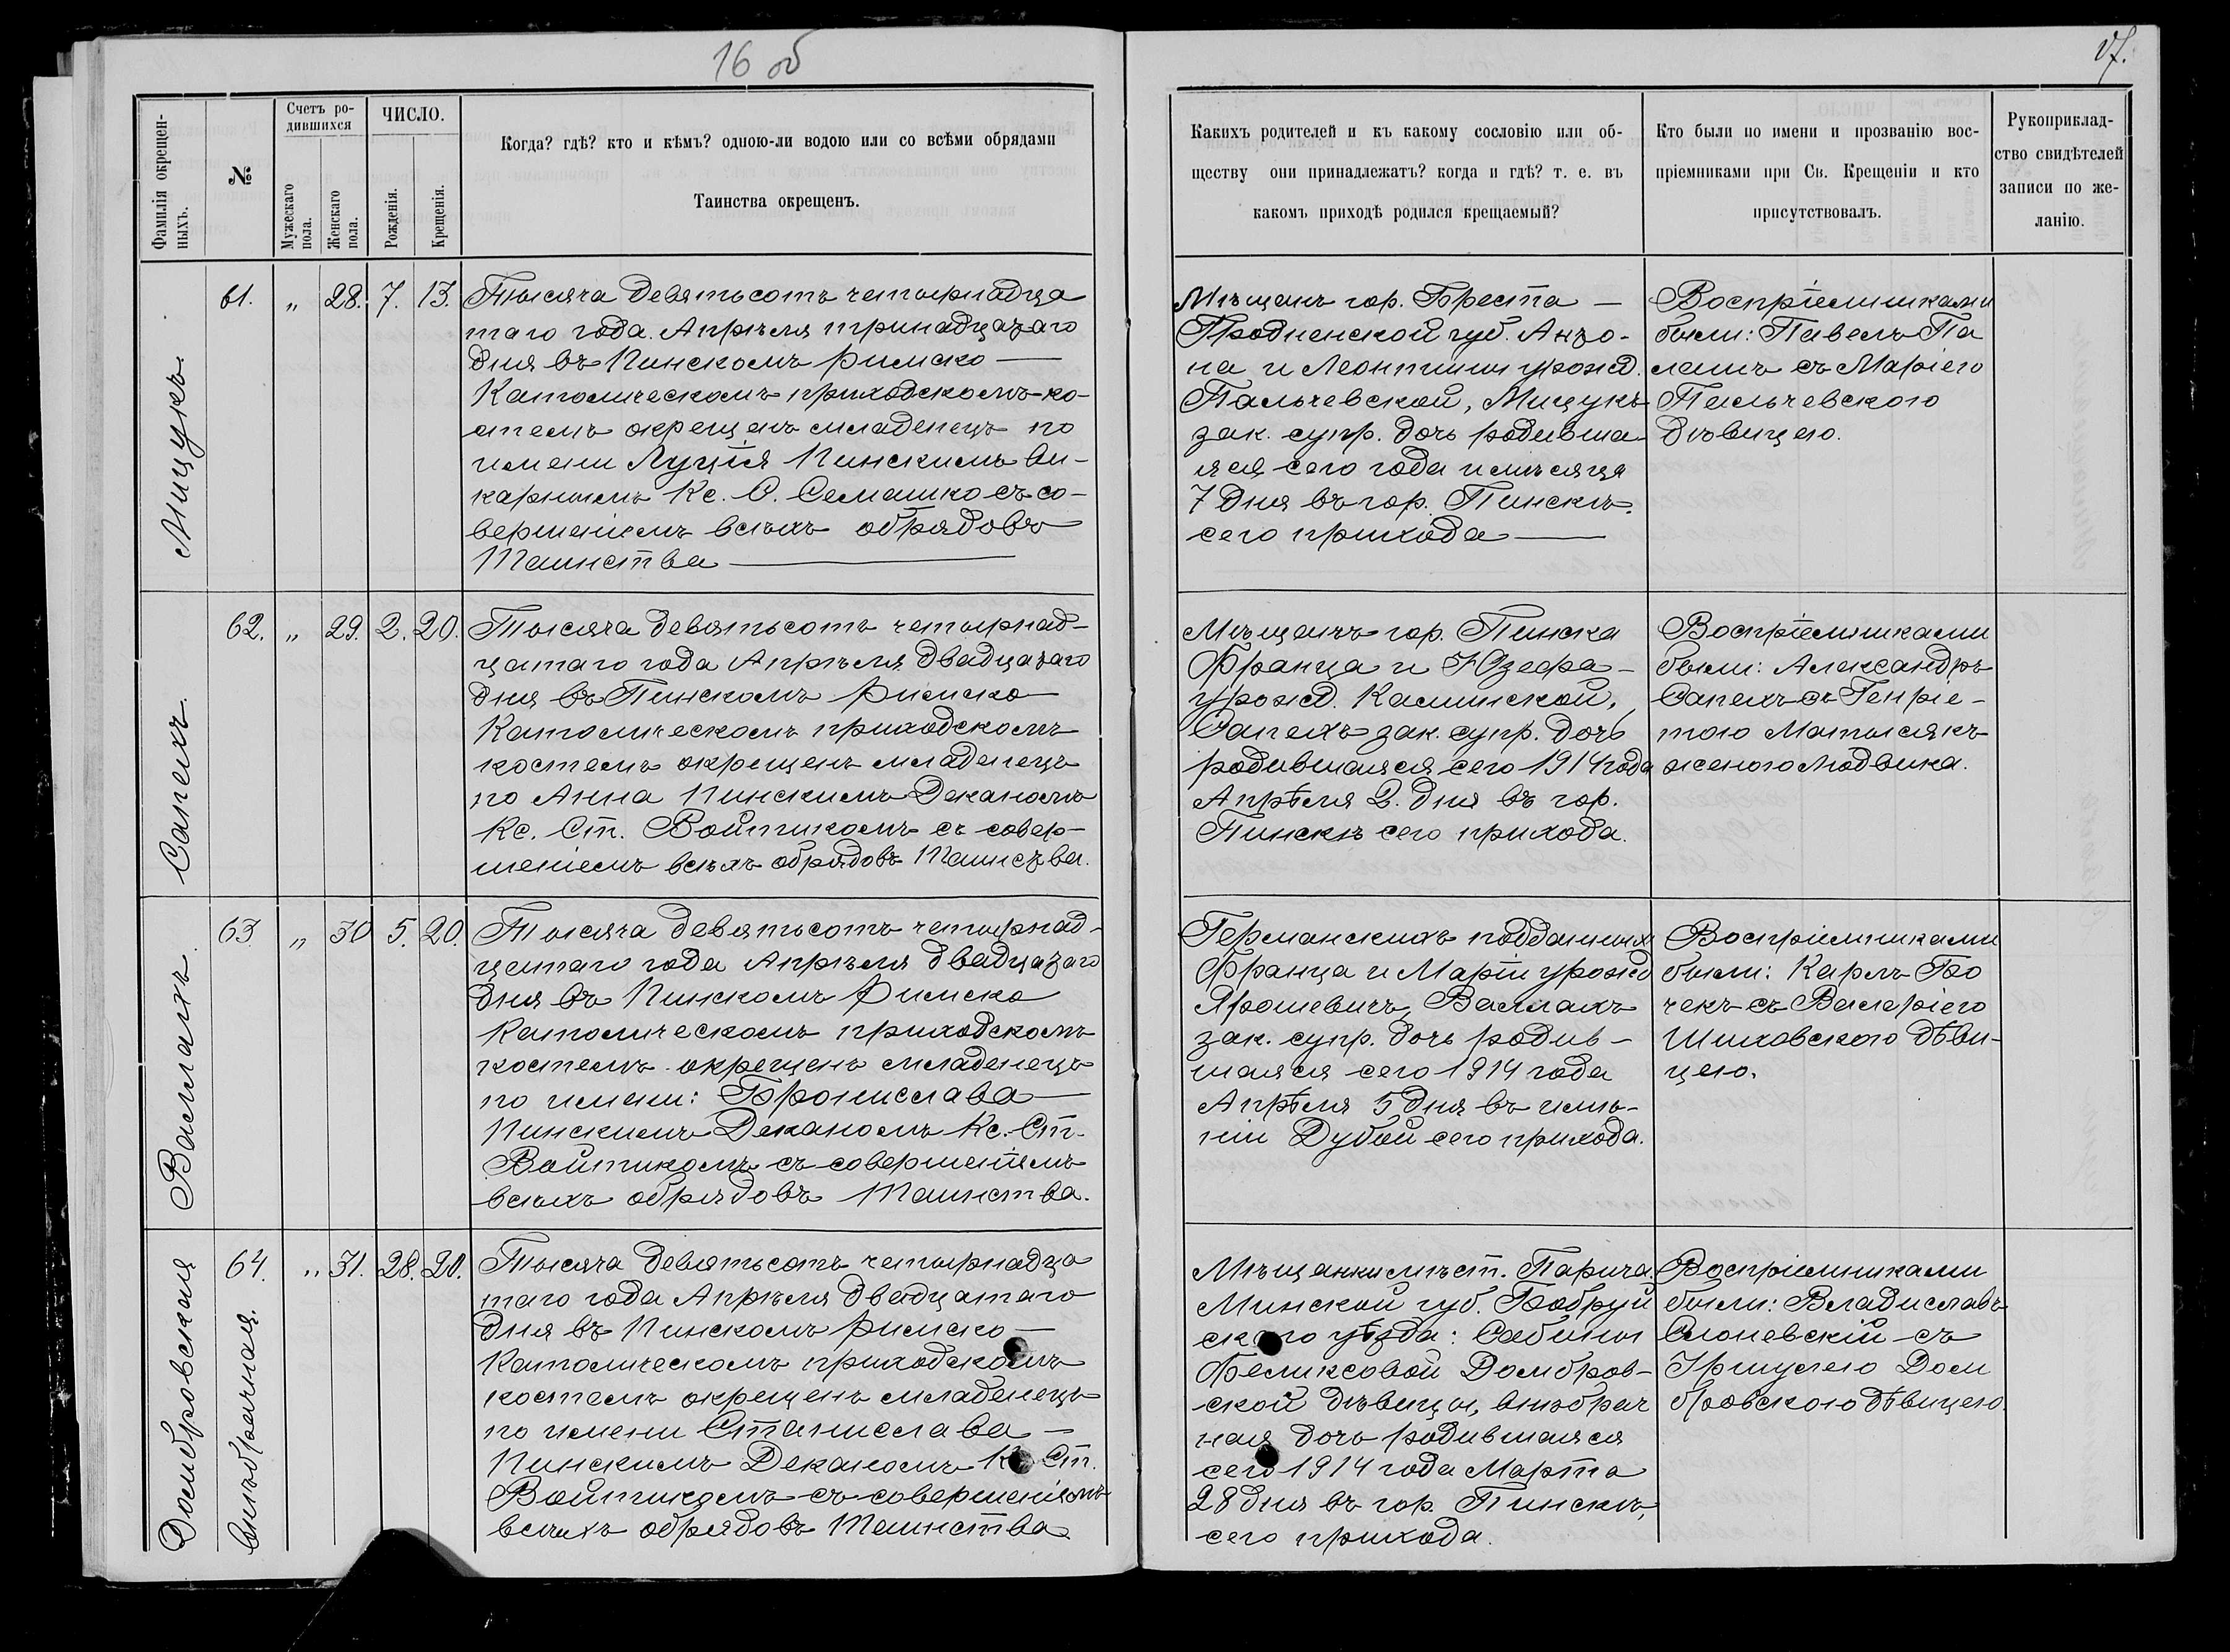 16 об
17.
Фамилія окрещен-
ныхъ.
№
Счетъ ро-
дившихся
Мужескаго
пола.
Женскаго
пола.
ЧИСЛО.
Рожденія.
Крещенія.
Когда? гдѣ? кто и кѣмъ? одною-ли водою или со всѣми обрядами
Таинства окрещенъ.
Какихъ родителей и къ какому сословію или об-
ществу они принадлежатъ? когда и гдѣ? т. е. въ
какомъ приходѣ родился крещаемый?
Кто были по имени и прозванію вос-
пріемниками при Св. Крещеніи и кто
присутствовалъ.
Рукоприклад-
ство свидѣтелей
записи по же-
ланію.
Мицукъ
61. „ 28. 7. 13.
Тысяча девятьсотъ четырнадца
таго года Апрѣля тринадцатаго
дня въ Пинскомъ римско —
Католическомъ приходскомъ ко-
стелѣ окрещенъ младенецъ по
имени Луція Пинскимъ Ви-
карнымъ Кс. О. Семашко съ со-
вершеніемъ всѣхъ обрядовъ
Таинства —
Мѣщанъ гор. Бреста —
Гродненской губ. Анто-
на и Леонтины урожд.
Пальчевской, Мицукъ
зак. супр. дочь родивша
яся сего года и мѣсяца
7 дня въ гор. Пинскѣ.
сего прихода —
Воспріемниками
были: Павелъ Па
лашъ съ Маріею
Пальчевскою
дѣвицею.
Сапехъ
62. „ 29. 2. 20.
Тысяча девятьсотъ четырнад-
цатаго года Апрѣля двадцатаго
дня въ Пинскомъ римско
Католическомъ приходскомъ
костелѣ окрещенъ младенецъ
по Анна Пинскимъ Деканомъ
Кс. Ст. Войтикомъ съ совер-
шеніемъ всѣхъ обрядовъ Таинства.
Мѣщанъ гор. Пинска
Франца и Юзефа-
урожд. Калинской,
Сапехъ зак. супр. дочь
родившаяся сего 1914 года
Апрѣля 2. дня въ гор.
Пинскѣ сего прихода.
Воспріемниками
были: Александръ
Сапехъ съ Генріе-
тою Матысякъ
женою Людвика.
Валлахъ
63. „ 30 5. 20.
Тысяча девятьсотъ четырнад-
цатаго года Апрѣля двадцатаго
дня въ Пинскомъ Римско
Католическомъ приходскомъ
костелѣ окрещенъ младенецъ
по имени: Бронислава —
Пинскимъ Деканомъ Кс. Ст.
Войтикомъ съ совершеніемъ
всѣхъ обрядовъ Таинства.
Германскихъ подданныхъ
Франца и Маріи урожд
Ярошевичъ, Валлахъ
зак. супр. дочь родив-
шаяся сего 1914 года
Апрѣля 5 дня въ имѣ-
ніи Дубой сего прихода.
Воспріемниками
были: Карлъ Бо
чекъ съ Валеріею
Шиховскою дѣви-
цею.
Домбровская
внѣбрачная.
64. „ 31. 28. 20.
Тысяча девятьсотъ четырнадца
таго года Апрѣля двадцатаго
дня въ Пинскомъ римско —
Католическомъ приходскомъ
костелѣ окрещенъ младенецъ
по имени Станислава —
Пинскимъ Деканомъ Кс Ст.
Войтикомъ съ совершеніемъ
всѣхъ обрядовъ Таинства
Мѣщанки мѣст. Парича.
Минской губ. Бобруй
скаго уѣзда: Сабины
Феликсовой Домбров-
ской дѣвицы, внѣбрач
ная дочь родившаяся
сего 1914 года Марта
28 дня въ гор. Пинскѣ,
сего прихода.
Воспріемниками
были: Владиславъ
Слоневскій съ
Уршулею Дом
бровскою дѣвицею.